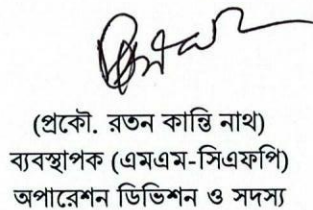 (প্রকৌ. রতন কান্তি নাথ)
ব্যবস্থাপক (এমএম-সিএফপি)
অপারেশন ডিভিশন ও সদস্য